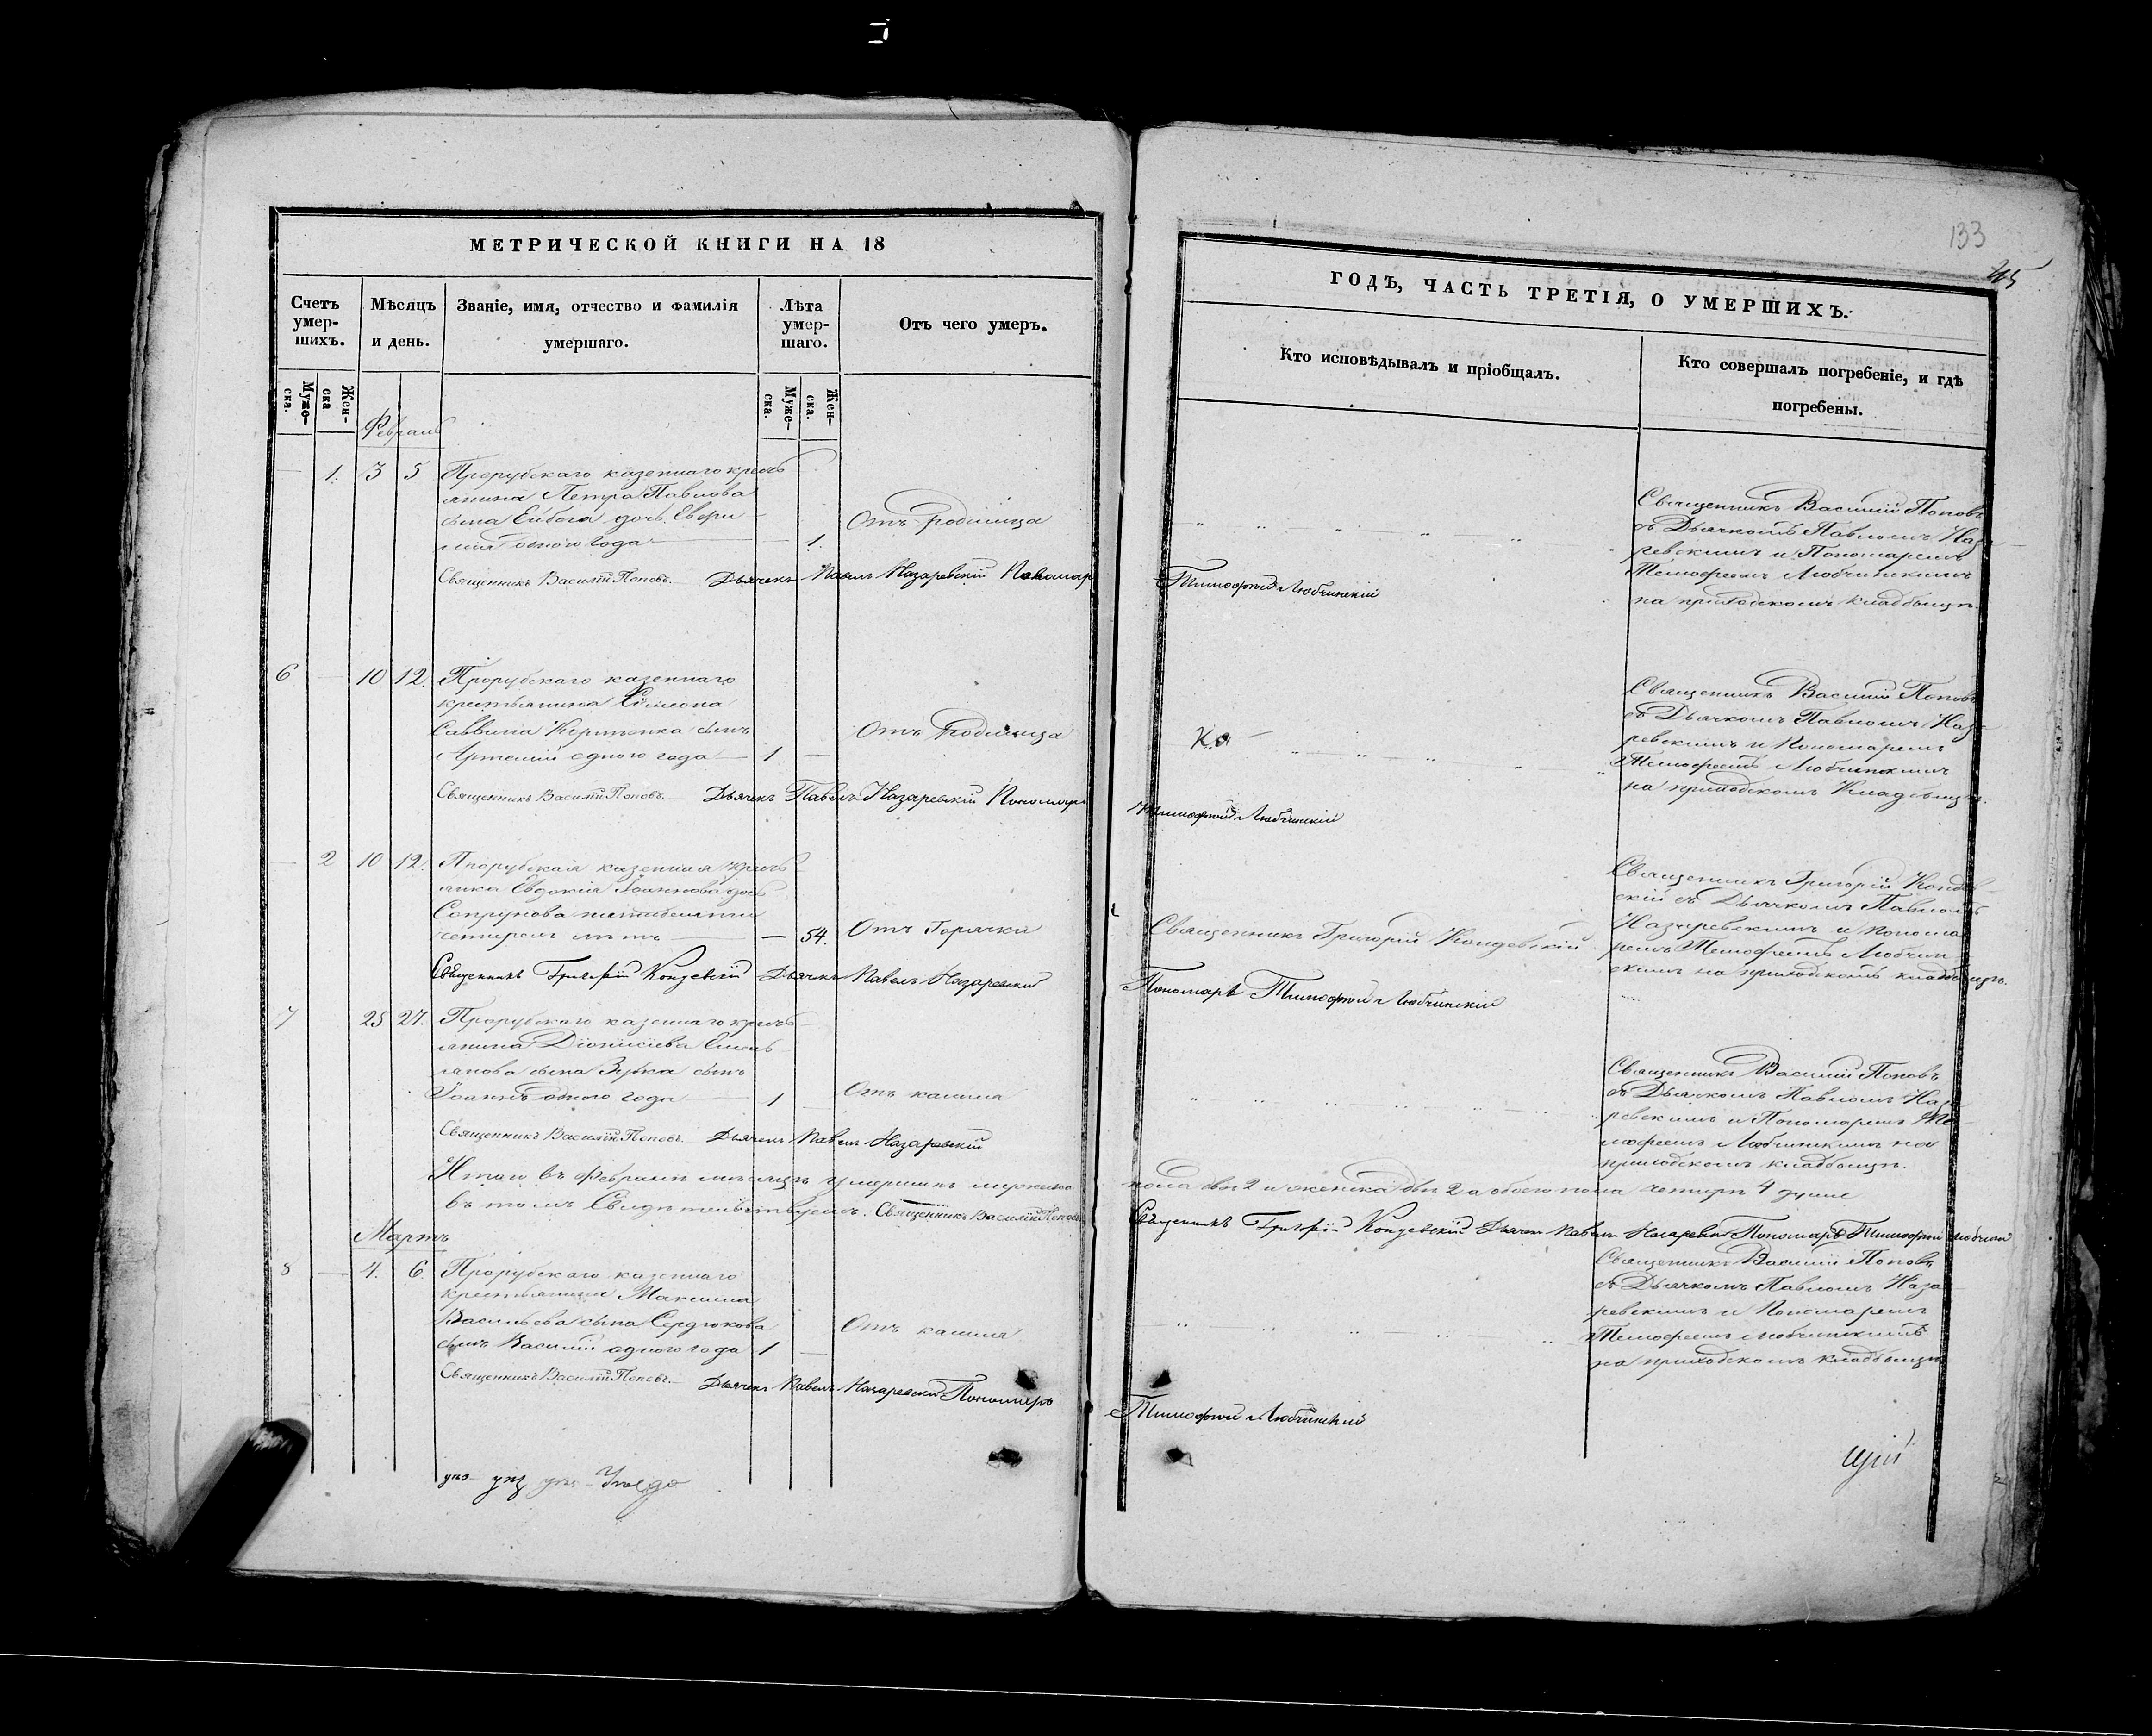 133
45
МЕТРИЧЕСКОЙ КНИГИ НА 18
ГОДЪ, ЧАСТЬ ТРЕТІЯ, О УМЕРШИХЪ.
Счетъ умер-шихъ.
Мѣсяцъ и день.
Званіе, имя, отчество и фамилія умершаго.
Лѣта умер-шаго.
Отъ чего умеръ.
Кто исповѣдывалъ и пріобщалъ.
Кто совершалъ погребеніе, и гдѣ погребены.
Муже-ска.
Жен-ска
Муже-ска.
Жен-ска.
Февраль
1. 3 5
Прорубскаго казеннаго кресть
янина Петра Павлова
сына дочь
одного года 1.
Отъ родимца
Священникъ Василій Поповъ
съ Дьячкомъ Павломъ Наза
ревскимъ и Пономаремъ
Тимофеемъ Любчинскимъ
на приходскомъ кладбищѣ.
Священникъ Василій Поповъ. Дьячекъ Павелъ Назаревскій Пономар
Тимофей Любчинскій
6 10 12.
Прорубскаго казеннаго
крестьянина Симеона
Саввина сынъ
Артемій одного года 1
Отъ Родимца
Священникъ Василій Поповъ
съ Дьячкомъ Павломъ Наза
ревскимъ и Пономаремъ
Тимофеемъ Любчинскимъ
на приходскомъ Кладбищѣ.
Священникъ Василій Поповъ. Дьячекъ Павелъ Назаревскій Пономарь
Тимофей Любчинскій
2 10 12.
Прорубская казенная кресть
янка Евдокія дочь
Сопрунова пятидесяти
четырехъ лѣтъ 54.
Отъ Горячки
Священникъ Григорій Кондевскій
Священникъ Григорій Кондев
скій съ Дьячкомъ Павломъ
Назаревскимъ и Понома
ремъ Тимофеемъ Любчин
скимъ на приходскомъ кладбищѣ.
Священникъ Григорій Кондевскій Дьячекъ Павелъ Назаревскій
Пономарь Тимофей Любчинскій
7 25 27.
Прорубскаго казеннаго кресть
янина Діонисіева Емель
янова сына Зубка сынъ
Іоаннъ одного года 1
Отъ кашля
Священникъ Василій Поповъ
съ Дьячкомъ Павломъ Наза
ревскимъ и Пономаремъ Ти
мофеемъ Любчинскимъ на
приходскомъ кладбищѣ.
Священникъ Василій Поповъ. Дьячекъ Павелъ Назаревскій
Итого въ Февралѣ мѣсяцѣ умершихъ мужеска
пола двѣ 2 и женска двѣ 2 а обоего пола четыре 4 души
въ томъ Свидѣтельствуемъ. Священникъ Василій Поповъ
Священникъ Григорій Кондевскій Дьячекъ Павелъ Назаревскій Пономарь Тимофей
Мартъ
8 4. 6.
Прорубскаго казеннаго
крестьянина Максима
Васильева сына Сердюкова
сынъ Василій одного года 1
Отъ кашля
Священникъ Василій Поповъ
съ Дьячкомъ Павломъ Наза
ревскимъ и Пономаремъ
Тимофеемъ Любчинскимъ
на приходскомъ кладбищѣ
Священникъ Василій Поповъ. Дьячекъ Павелъ Назаревскій Пономарь
Тимофей Любчинскій